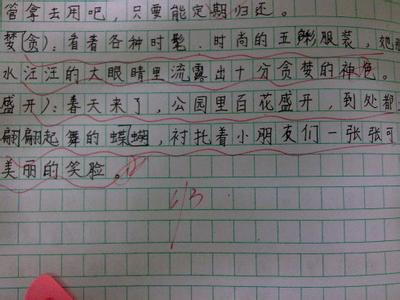 管拿去用吧，只要能定期归还。
梦(贪)：看着各种时髦、时尚的五彩服装，她那
水汪汪的大眼睛里流露出十分贪梦的神色。
盛开)：春天来了，公园里百花盛开，到处都
翩翩起舞的蝶蝴，衬托着小朋友们一张张可
美丽的笑脸。